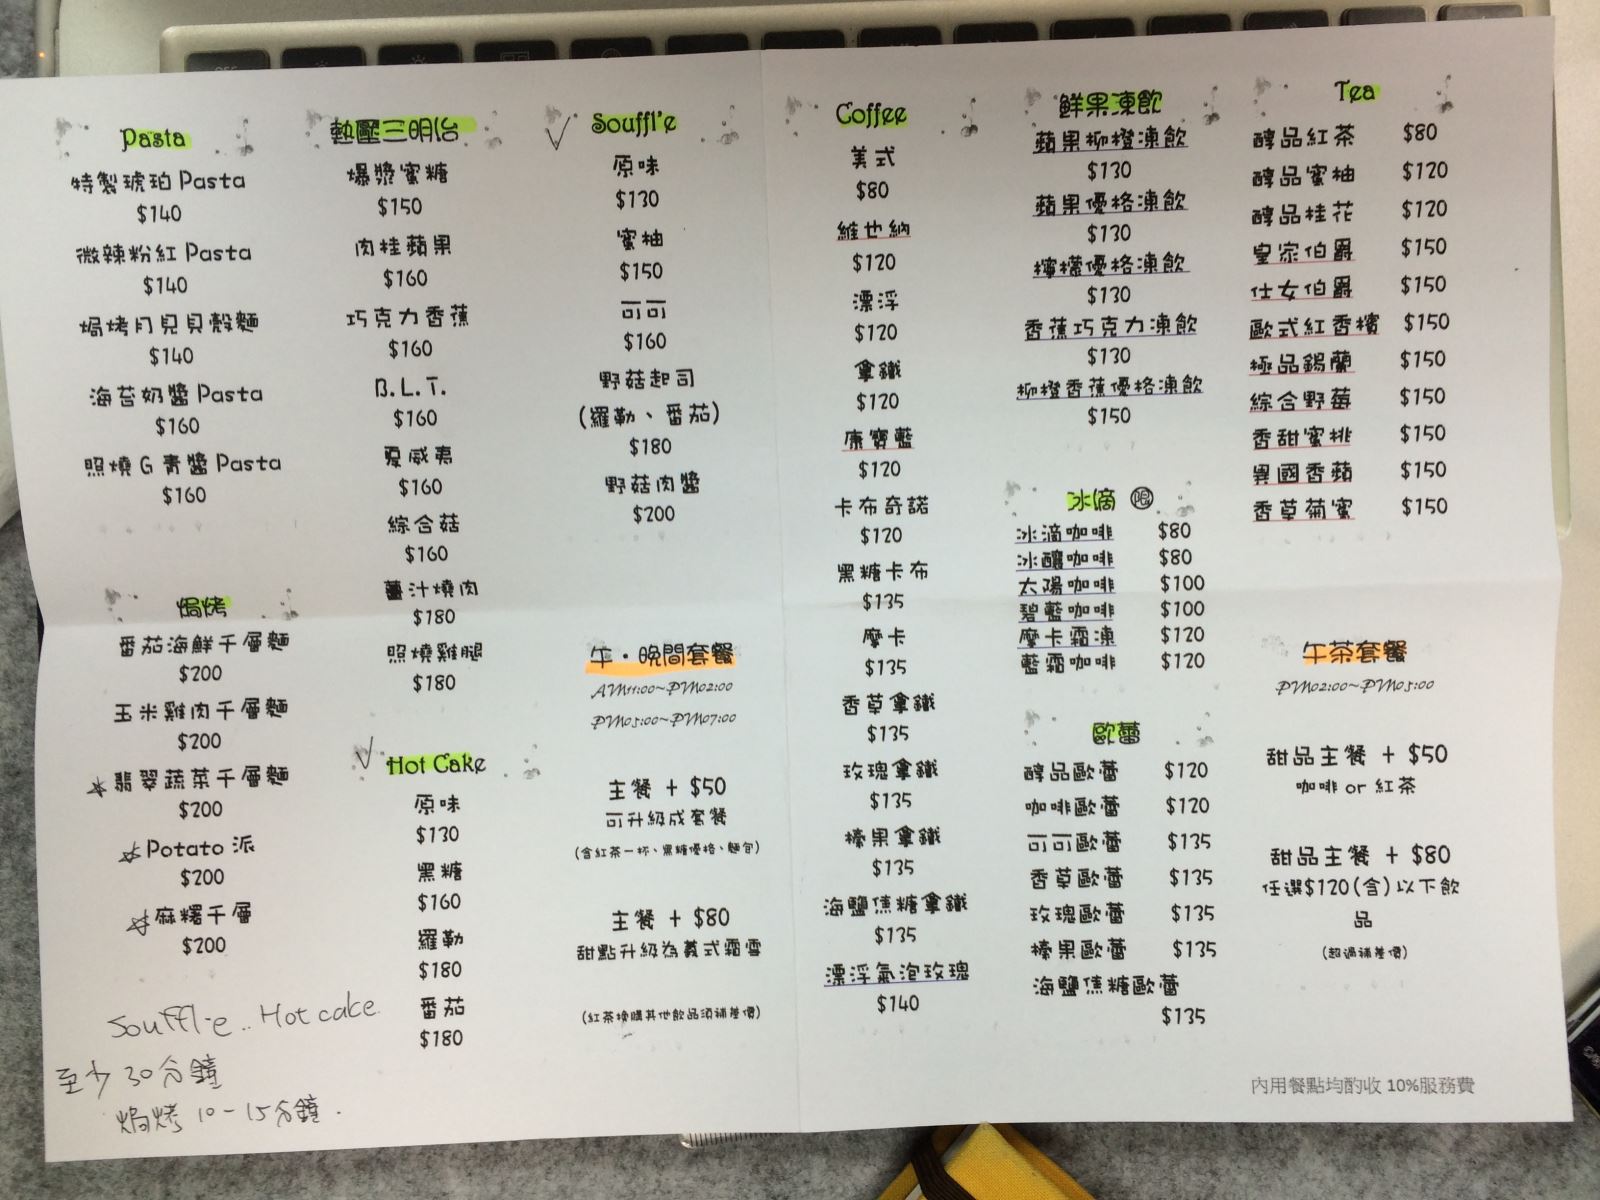 Pasta
特製琥珀 Pasta
$140
微辣粉紅 Pasta
$140
焗烤月兒貝殼麵
$140
海苔奶醬 Pasta
$160
照燒 G 青醬 Pasta
$160
焗烤
番茄海鮮千層麵
$200
玉米雞肉千層麵
$200
翡翠蔬菜千層麵
$200
Potato 派
$200
麻糬千層
$200
Souffl'e .. Hot cake
至少 30分鐘
焗烤 10-15分鐘.
熱壓三明治
爆漿蜜糖
$150
肉桂蘋果
$160
巧克力香蕉
$160
B.L.T.
$160
夏威夷
$160
綜合菇
$160
薑汁燒肉
$180
照燒雞腿
$180
Hot Cake
原味
$130
黑糖
$160
羅勒
$180
番茄
$180
Souffl'e
原味
$130
蜜柚
$150
可可
$160
野菇起司
(羅勒、番茄)
$180
野菇肉醬
$200
午・晚間套餐
AM11:00~PM02:00
PM05:00~PM07:00
主餐 + $50
可升級成套餐
(含紅茶一杯、黑糖優格、麵包)
主餐 + $80
甜點升級為義式霜雪
(紅茶換購其他飲品須補差價)
Coffee
美式
$80
維也納
$120
漂浮
$120
拿鐵
$120
康寶藍
$120
卡布奇諾
$120
黑糖卡布
$135
摩卡
$135
香草拿鐵
$135
玫瑰拿鐵
$135
榛果拿鐵
$135
海鹽焦糖拿鐵
$135
漂浮氣泡玫瑰
$140
鮮果凍飲
蘋果柳橙凍飲
$130
蘋果優格凍飲
$130
檸檬優格凍飲
$130
香蕉巧克力凍飲
$130
柳橙香蕉優格凍飲
$150
冰滴 限
冰滴咖啡 $80
冰釀咖啡 $80
太陽咖啡 $100
碧藍咖啡 $100
摩卡霜凍 $120
藍霜咖啡 $120
歐蕾
醇品歐蕾 $120
咖啡歐蕾 $120
可可歐蕾 $135
香草歐蕾 $135
玫瑰歐蕾 $135
榛果歐蕾 $135
海鹽焦糖歐蕾
$135
Tea
醇品紅茶 $80
醇品蜜柚 $120
醇品桂花 $120
皇家伯爵 $150
仕女伯爵 $150
歐式紅香檳 $150
極品錫蘭 $150
綜合野莓 $150
香甜蜜桃 $150
異國香蘋 $150
香草菊蜜 $150
午茶套餐
PM02:00~PM05:00
甜品主餐 + $50
咖啡 or 紅茶
甜品主餐 + $80
任選$120(含)以下飲
品
(超過補差價)
內用餐點均酌收 10%服務費